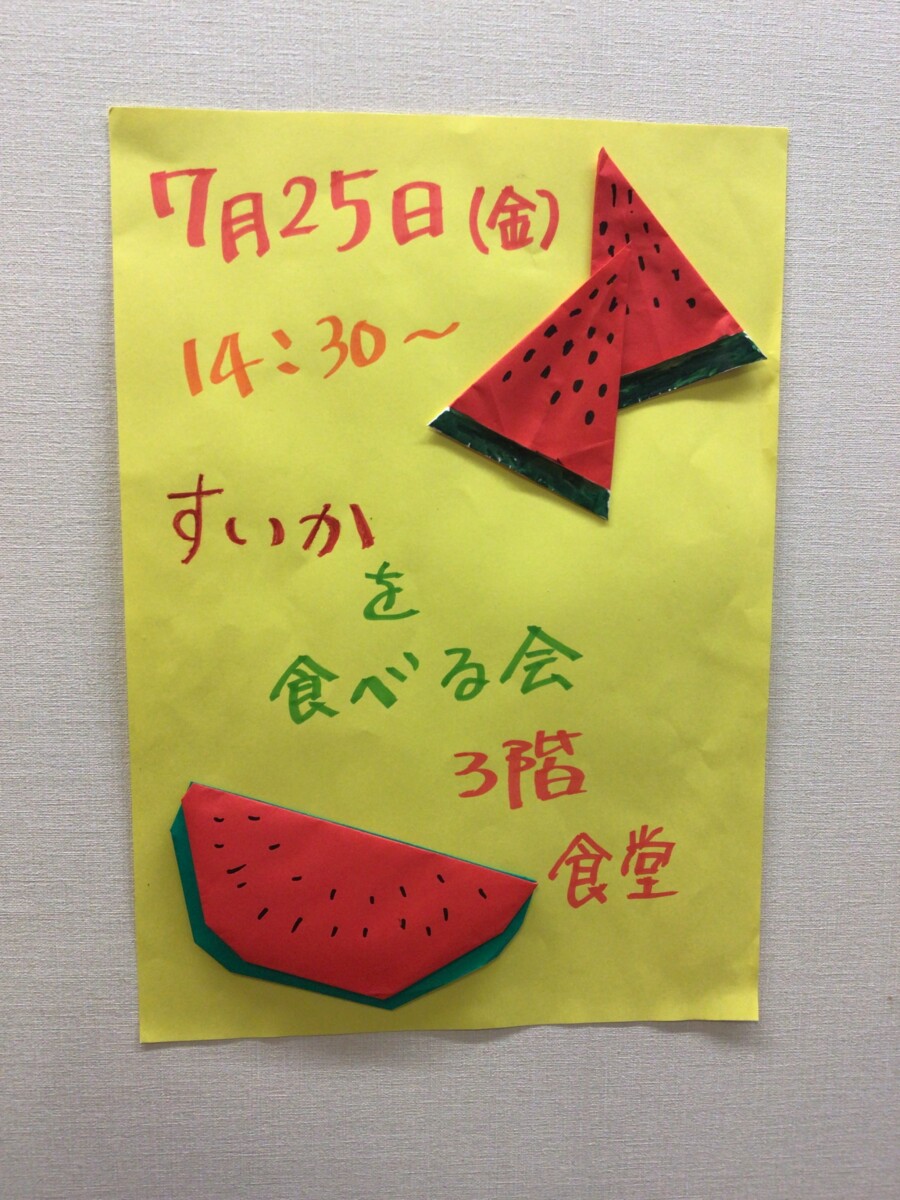 7月25日(金)
14:30~
すいか
を
食べる会
3階
食堂